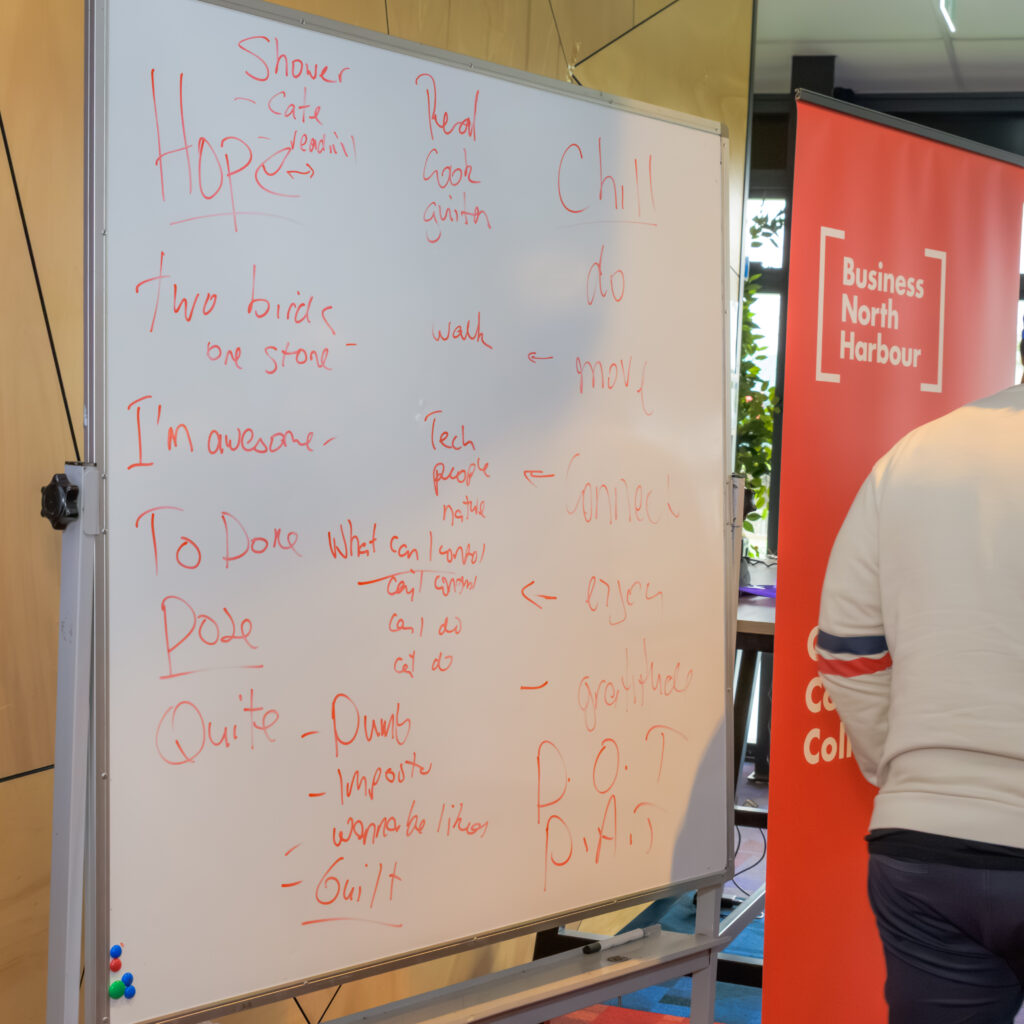 Shower
- Cafe
- reading
Hope
Read
Cook
guitar
Chill
do
two birds
one stone -
walk
move
I'm awesome -
Tech
people
nature
Connect
To Done
What can I control
can't control
can I do
cat do
enjoy
Doze
gratitude
Quite
- Dumb
- Imposta
wannabe likes
- Guilt
D.O.T
P.A.T
Business
North
Harbour
Co
Coll